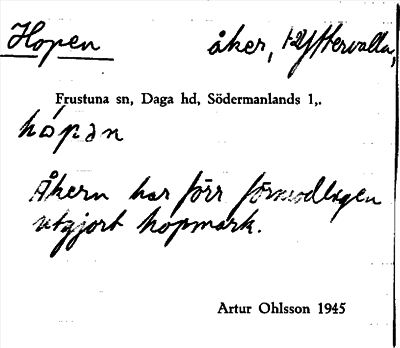 Hopen åker, Yttervalla,
Frustuna sn, Daga hd, Södermanlands l,.
hópən
Åkern har förr förmodligen
utgjort hopmark.
Artur Ohlsson 1945